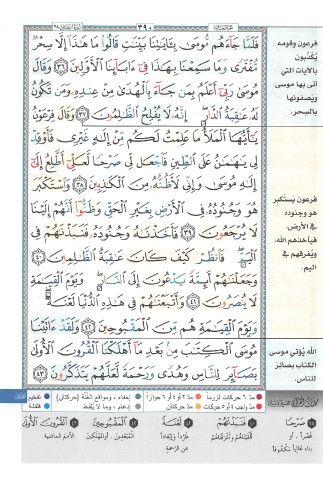 ٣٩٠
فَلَمَّا جَاءَهُم مُّوسَىٰ بِـَٔايَـٰتِنَا بَيِّنَـٰتٍ قَالُوا۟ مَا هَـٰذَآ إِلَّا سِحْرٌ
مُّفْتَرًى وَمَا سَمِعْنَا بِهَـٰذَا فِىٓ ءَابَآئِنَا ٱلْأَوَّلِينَ ٣٦ وَقَالَ
مُوسَىٰ رَبِّىٓ أَعْلَمُ بِمَن جَآءَ بِٱلْهُدَىٰ مِنْ عِندِهِۦ وَمَن تَكُونُ
لَهُۥ عَـٰقِبَةُ ٱلدَّارِ إِنَّهُۥ لَا يُفْلِحُ ٱلظَّـٰلِمُونَ ٣٧ وَقَالَ فِرْعَوْنُ
يَـٰٓأَيُّهَا ٱلْمَلَأُ مَا عَلِمْتُ لَكُم مِّنْ إِلَـٰهٍ غَيْرِى فَأَوْقِدْ
لِى يَـٰهَـٰمَـٰنُ عَلَى ٱلطِّينِ فَٱجْعَل لِّى صَرْحًا لَّعَلِّىٓ أَطَّلِعُ إِلَىٰٓ
إِلَـٰهِ مُوسَىٰ وَإِنِّى لَأَظُنُّهُۥ مِنَ ٱلْكَـٰذِبِينَ ٣٨ وَٱسْتَكْبَرَ
هُوَ وَجُنُودُهُۥ فِى ٱلْأَرْضِ بِغَيْرِ ٱلْحَقِّ وَظَنُّوٓا۟ أَنَّهُمْ إِلَيْنَا
لَا يُرْجَعُونَ ٣٩ فَأَخَذْنَـٰهُ وَجُنُودَهُۥ فَنَبَذْنَـٰهُمْ فِى
ٱلْيَمِّ فَٱنظُرْ كَيْفَ كَانَ عَـٰقِبَةُ ٱلظَّـٰلِمِينَ ٤٠
وَجَعَلْنَـٰهُمْ أَئِمَّةً يَدْعُونَ إِلَى ٱلنَّارِ وَيَوْمَ ٱلْقِيَـٰمَةِ
لَا يُنصَرُونَ ٤١ وَأَتْبَعْنَـٰهُمْ فِى هَـٰذِهِ ٱلدُّنْيَا لَعْنَةً
وَيَوْمَ ٱلْقِيَـٰمَةِ هُم مِّنَ ٱلْمَقْبُوحِينَ ٤٢ وَلَقَدْ ءَاتَيْنَا
مُوسَى ٱلْكِتَـٰبَ مِنۢ بَعْدِ مَآ أَهْلَكْنَا ٱلْقُرُونَ ٱلْأُولَىٰ
بَصَآئِرَ لِلنَّاسِ وَهُدًى وَرَحْمَةً لَّعَلَّهُمْ يَتَذَكَّرُونَ ٤٣
فرعون وقومه
يكذبون
بالآيات التي
أتى بها موسى
ويصفونها
بالسحر.
فرعون يستكبر
هو وجنوده
في الأرض،
فيأخذهم الله،
ويغرقهم في
اليم.
الله يُؤتي موسى
الكتاب بصائر
للناس.
مدّ ٦ حركات لزوماً
مدّ ٢ أو ٤ أو ٦ جوازاً
إخفاء، ومواقع الغنّة (حركتان)
تفخيم
مدّ واجب ٤ أو ٥ حركات
مدّ حركتان
إدغام، وما لا يُلفظ
قلقلة
٣٨ صَرْحًا
قصراً. أو
بناء عالياً مكشوفاً
٤٠ فَنَبَذْنَـٰهُمْ
٤٢ لَعْنَةً
طرداً وإبعاداً
عن الرحمة
٤٢ ٱلْمَقْبُوحِينَ
٤٣ ٱلْقُرُونَ ٱلْأُولَىٰ
الأمم الماضية